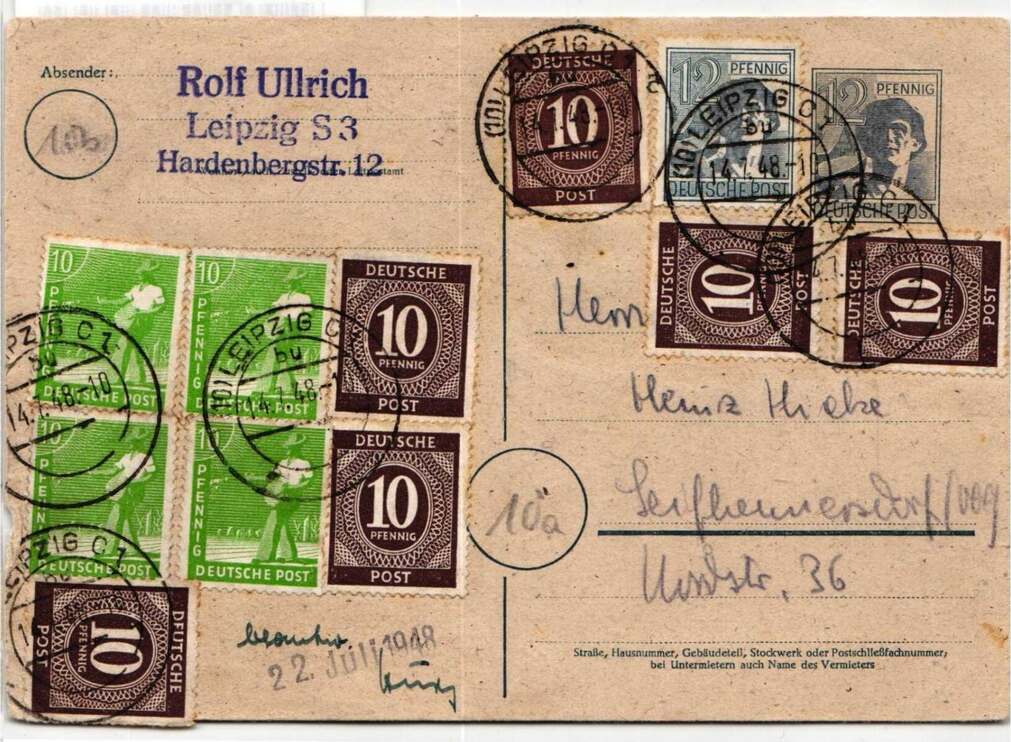 Absender:
Rolf Ullrich
Leipzig S 3
Hardenbergstr. 12
10b
(10) LEIPZIG C 1
bu
DEUTSCHE
10
PFENNIG
POST
12 PFENNIG
DEUTSCHE POST
(10) LEIPZIG C 1
bu
14.7.48.-10
12
PFENNIG
DEUTSCHE POST
LEIPZIG C 1
DEUTSCHE
10
PFENNIG
POST
DEUTSCHE
10
PFENNIG
POST
10
PFENNIG
DEUTSCHE POST
10
PFENNIG
DEUTSCHE POST
DEUTSCHE
10
PFENNIG
POST
LEIPZIG C 1
bu
14.7.48.-10
(10) LEIPZIG C
bu
14.7.48.-1
10
PFENNIG
DEUTSCHE POST
PFENNIG
DEUTSCHE POST
DEUTSCHE
10
PFENNIG
POST
LEIPZIG C 1
DEUTSCHE
10
PFENNIG
POST
Herrn
Heinz Hielze
10a
Seifhennersdorf
Nordstr. 36
beantw.
22. Juli 1948
Straße, Hausnummer, Gebäudeteil, Stockwerk oder Postschließfachnummer;
bei Untermietern auch Name des Vermieters